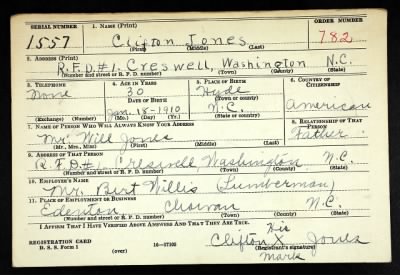 SERIAL NUMBER 1. NAME (Print) ORDER NUMBER
1557 Clifton Jones 782
(First) (Middle) (Last)
2. ADDRESS (Print)
R.F.D.#1. Creswell, Washington N.C.
(Number and street or R. F. D. number) (Town) (County) (State)
3. TELEPHONE 4. AGE IN YEARS 5. PLACE OF BIRTH 6. COUNTRY OF CITIZENSHIP
None 30 Hyde
DATE OF BIRTH (Town or county)
Jan-18-1910 N.C. American
(Exchange) (Number) (Mo.) (Day) (Yr.) (State or country)
7. NAME OF PERSON WHO WILL ALWAYS KNOW YOUR ADDRESS 8. RELATIONSHIP OF THAT PERSON
Mr. Will Jones Father
(Mr., Mrs., Miss) (First) (Middle) (Last)
9. ADDRESS OF THAT PERSON
R.F.D.#1 Creswell, Washington N.C.
(Number and street or R. F. D. number) (Town) (County) (State)
10. EMPLOYER'S NAME
Mr. Bert Willis (Lumberman)
11. PLACE OF EMPLOYMENT OR BUSINESS
Edenton, Chowan N.C.
(Number and street or R. F. D. number) (Town) (County) (State)
I AFFIRM THAT I HAVE VERIFIED ABOVE ANSWERS AND THAT THEY ARE TRUE.
His
REGISTRATION CARD Clifton X Jones
D. S. S. Form 1 (over) 16-17105 (Registrant's signature)
Mark